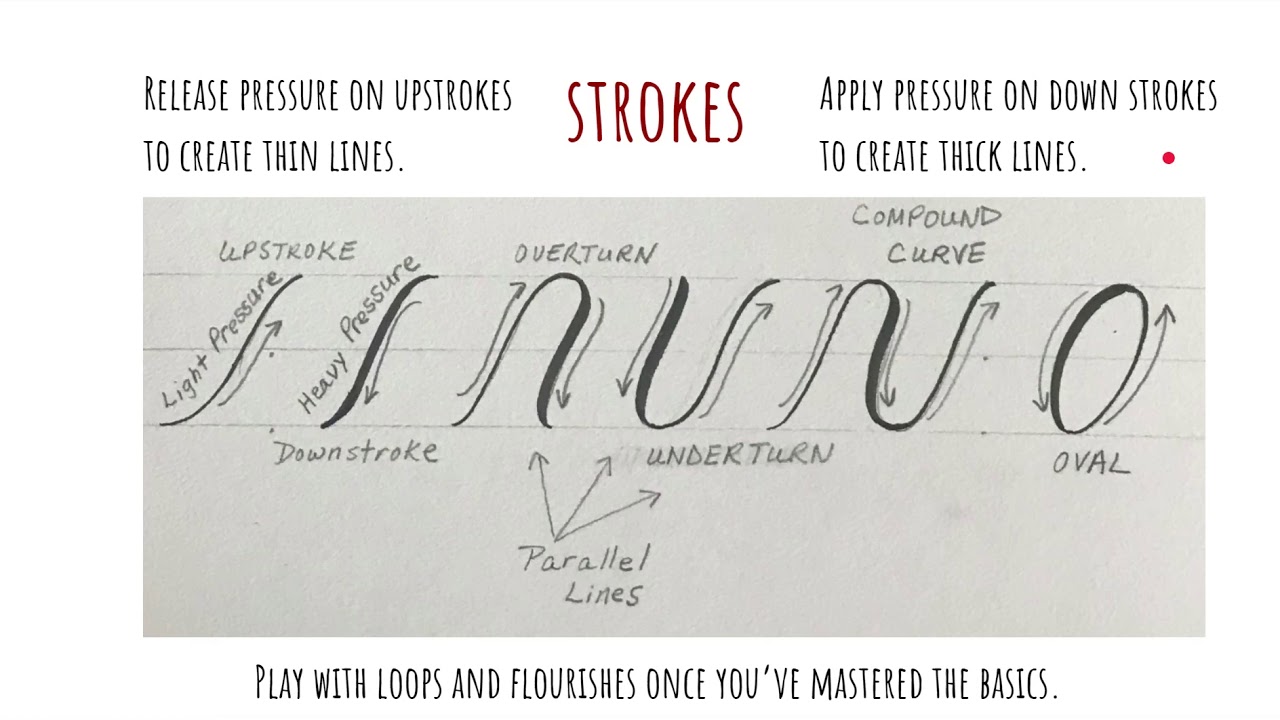 RELEASE PRESSURE ON UPSTROKES
TO CREATE THIN LINES.
STROKES
APPLY PRESSURE ON DOWN STROKES
TO CREATE THICK LINES.
UPSTROKE
Light Pressure
Heavy Pressure
Downstroke
OVERTURN
UNDERTURN
COMPOUND
CURVE
OVAL
Parallel
Lines
PLAY WITH LOOPS AND FLOURISHES ONCE YOU'VE MASTERED THE BASICS.